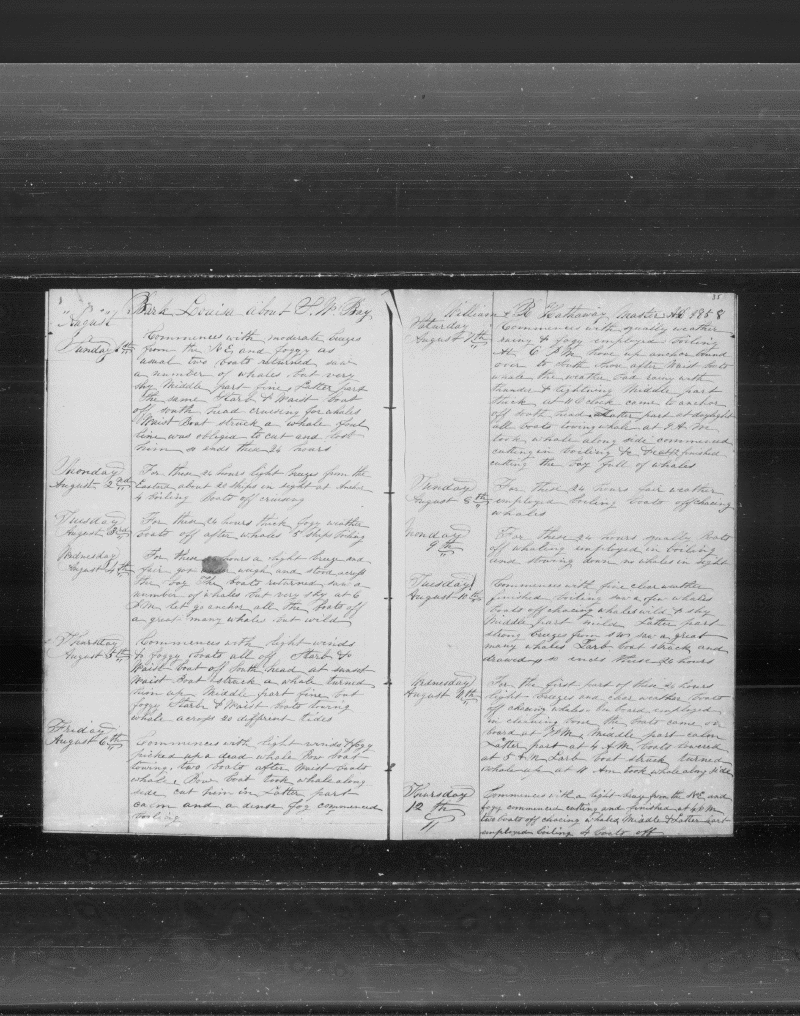 Bark Louisa about S. W. Bay
August
Sunday 1st
Commences with moderate breezes
from the N E, and foggy as
usual two boats returned saw
a number of whales but very
shy Middle part fine Latter part
the same Starb & Waist Boat
off south head cruising for whales
Waist Boat struck a whale foul
line was obliged to cut and lost
him so ends these 24 hours
Monday
August 2nd
For these 24 hours light breezes from the
Eastward about 20 ships in sight at Anchor
4 boiling Boats off cruising
Tuesday
August 3rd
For these 24 hours thick fogy weather
boats off after whales 5 ships boiling
Wednesday
August 4th
For these hours a light breeze and
fair got weigh and stood across
the bay The boats returned saw a
number of whales but very shy at 6
P.M. let go anchor all the boats off
a great many whales but wild
Thursday
August 5th
Commences with light winds
& foggy boats all off Starb &
Waist boat off South head at sunset
Waist Boat struck a whale turned
him up Middle part fine but
foggy Starb & Waist boats towing
whale across 20 different tides
Friday
August 6th
Commences with light winds & fogy
picked up a dead whale Bow boat
towing, two boats after Waist boats
whale, Bow boat took whale along
side cut him in Latter part
calm and a dense fog commenced
boiling
35
William R Hathaway Master AD 1858
Saturday
August 7th
Commences with squally weather
rainy & fogy employed boiling
At 6 P.M. hove up anchor bound
over to South Shore after Waist boats
whale the weather bad rainy with
thunder & lightning Middle part
thick at 11 O clock came to anchor
off north head Latter part at daylight
all boats towing whale at 9 A.M
took whale along side commenced
cutting in boiling & finished
cutting the bay full of whales
Sunday
August 8th
For these 24 hours fair weather
employed boiling boats off chasing
whales
Monday
9th
For these 24 hours squally Boats
off whaling employed in boiling
and stowing down no whales in sight
Tuesday
August 10th
Commences with fine clear weather
finished boiling saw a few whales
boats off chasing whales wild & shy
Middle part mild Latter part
strong breezes from SW saw a great
many whales Larb boat struck and
drawed so ends these 24 hours
Wednesday
August 11th
For the first part of these 24 hours
light breezes and clear weather boats
off chasing whales On board employed
in cleaning bone the boats came on
board at 7 P.M. Middle part calm
Latter part at 4 A.M. boats lowered
at 5 A.M Larb boat struck turned
whale up at 11 Am took whale along side
Thursday
12th
Commences with a light breeze from the NE and
fogy commenced cutting and finished at 4 P.M
two boats off chasing whales Middle & Latter part
employed boiling 4 boats off